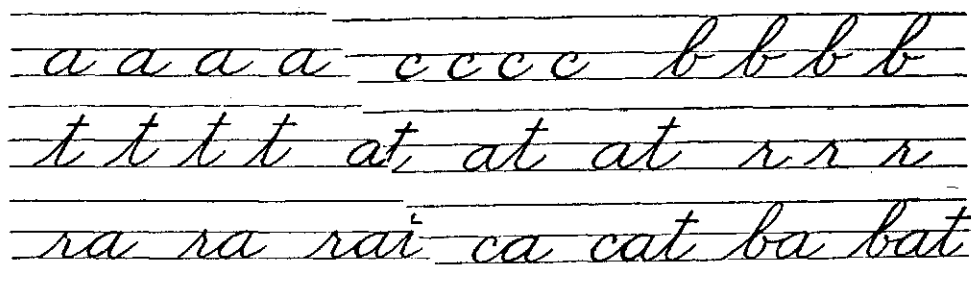 a a a a c c c c b b b b
t t t t at at at r r r
ra ra rai ca cat ba bat